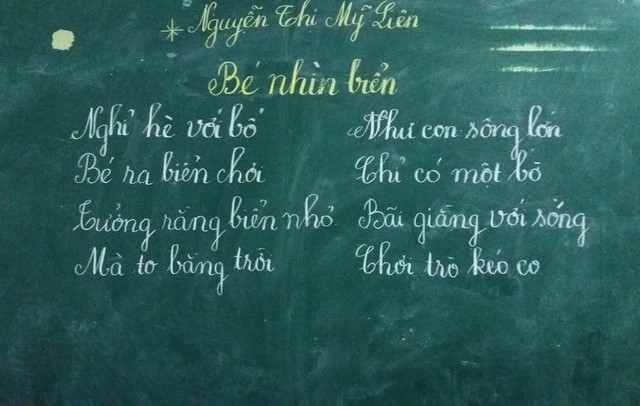 * Nguyễn Thi Mỹ Liên
Bé nhìn biển
Nghỉ hè với bố
Bé ra biển chơi
Tưởng rằng biển nhỏ
Mà to bằng trời
Như con sông lớn
Chỉ có một bờ
Bãi giằng với sóng
Chơi trò kéo co